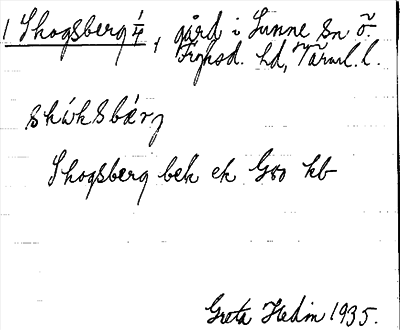 1 Skogsberg 1/4, gård i Sunne sn ö.
Fryksd. hd, Värml. l.
skẃksbárj
Skogsberg bek ek G80 kb
Greta Hedin 1935.